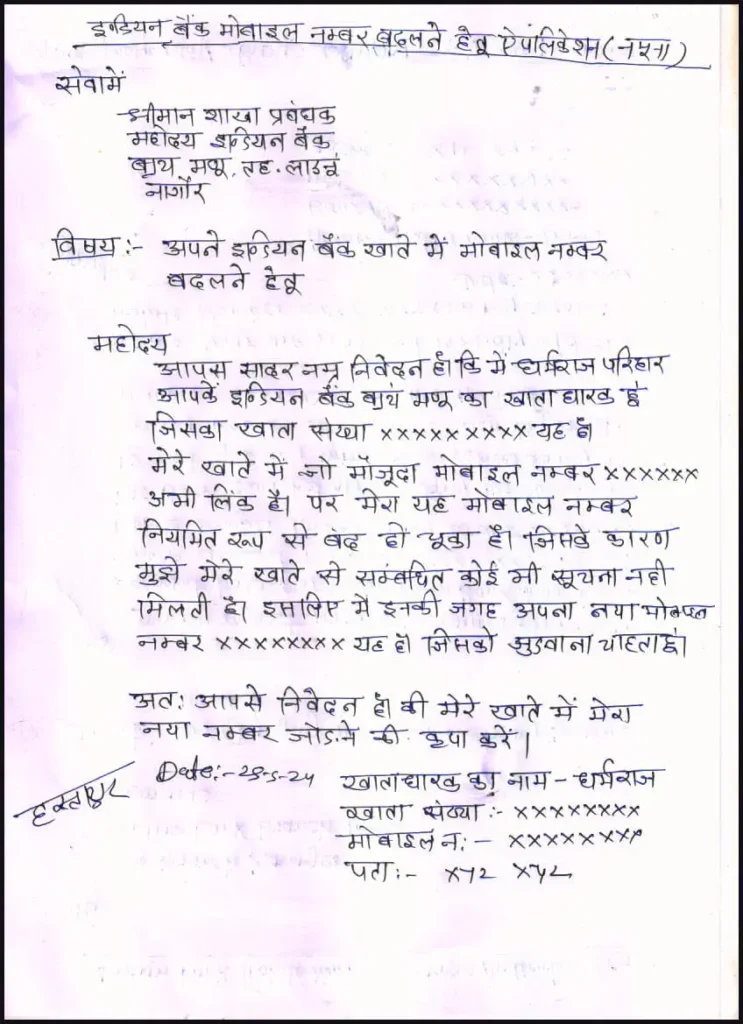 इन्डियन बैंक मोबाइल नम्बर बदलने हेतू ऐपलिकेशन (नमूना)
सेवामें
श्रीमान शाखा प्रबंधक
महोदय इन्डियन बैंक
तह. लाडनूं
नागौर
विषय :- अपने इन्डियन बैंक खाते में मोबाइल नम्बर
बदलने हेतू
महोदय
आपसे सादर नम्र निवेदन है। कि में धर्मराज परिहार
आपके इन्डियन बैंक का खाता धारक हूं
जिसका खाता संख्या xxxxxxxxx यह है।
मेरे खाते में जो मौजूदा मोबाइल नम्बर xxxxxx
अभी लिंक है। पर मेरा यह मोबाइल नम्बर
नियमित रूप से बंद हो चूका है। जिसके कारण
मुझे मेरे खाते से सम्बंधित कोई भी सूचना नही
मिलती है। इसलिए में इनकी जगह अपना नया मोबाइल
नम्बर xxxxxxxx यह है। जिसको जुडवाना चाहता हूं।
अत: आपसे निवेदन है। की मेरे खाते में मेरा
नया नम्बर जोडने की कृपा करे।
Date:-28-5-24
हस्ताक्षर
खाताधारक का नाम - धर्मराज
खाता संख्या :- xxxxxxxx
मोबाइल न. :- xxxxxxxx
पता :- xyz xyz